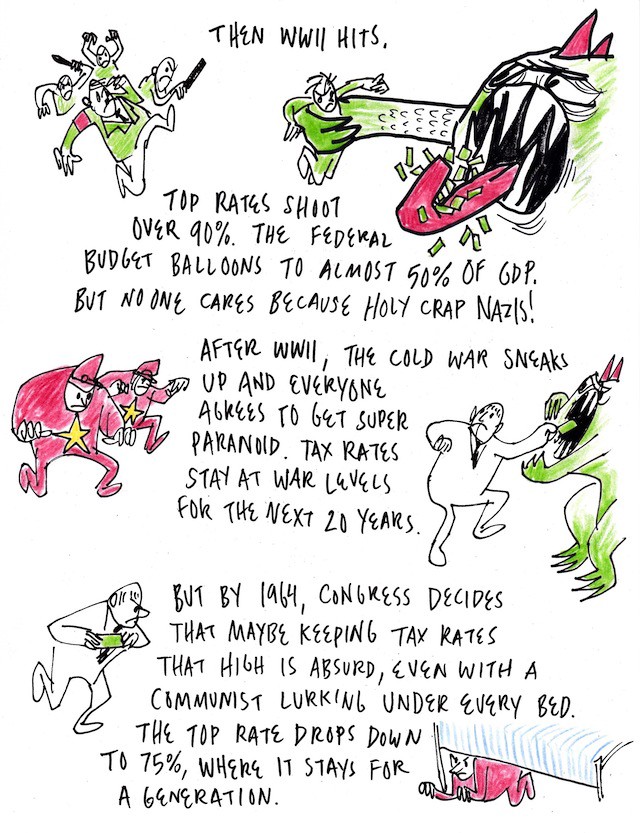 THEN WWII HITS.
TOP RATES SHOOT
OVER 90%. THE FEDERAL
BUDGET BALLOONS TO ALMOST 50% OF GDP.
BUT NO ONE CARES BECAUSE HOLY CRAP NAZIS!
AFTER WWII, THE COLD WAR SNEAKS
UP AND EVERYONE
AGREES TO GET SUPER
PARANOID. TAX RATES
STAY AT WAR LEVELS
FOR THE NEXT 20 YEARS.
BUT BY 1964, CONGRESS DECIDES
THAT MAYBE KEEPING TAX RATES
THAT HIGH IS ABSURD, EVEN WITH A
COMMUNIST LURKING UNDER EVERY BED.
THE TOP RATE DROPS DOWN
TO 75%, WHERE IT STAYS FOR
A GENERATION.